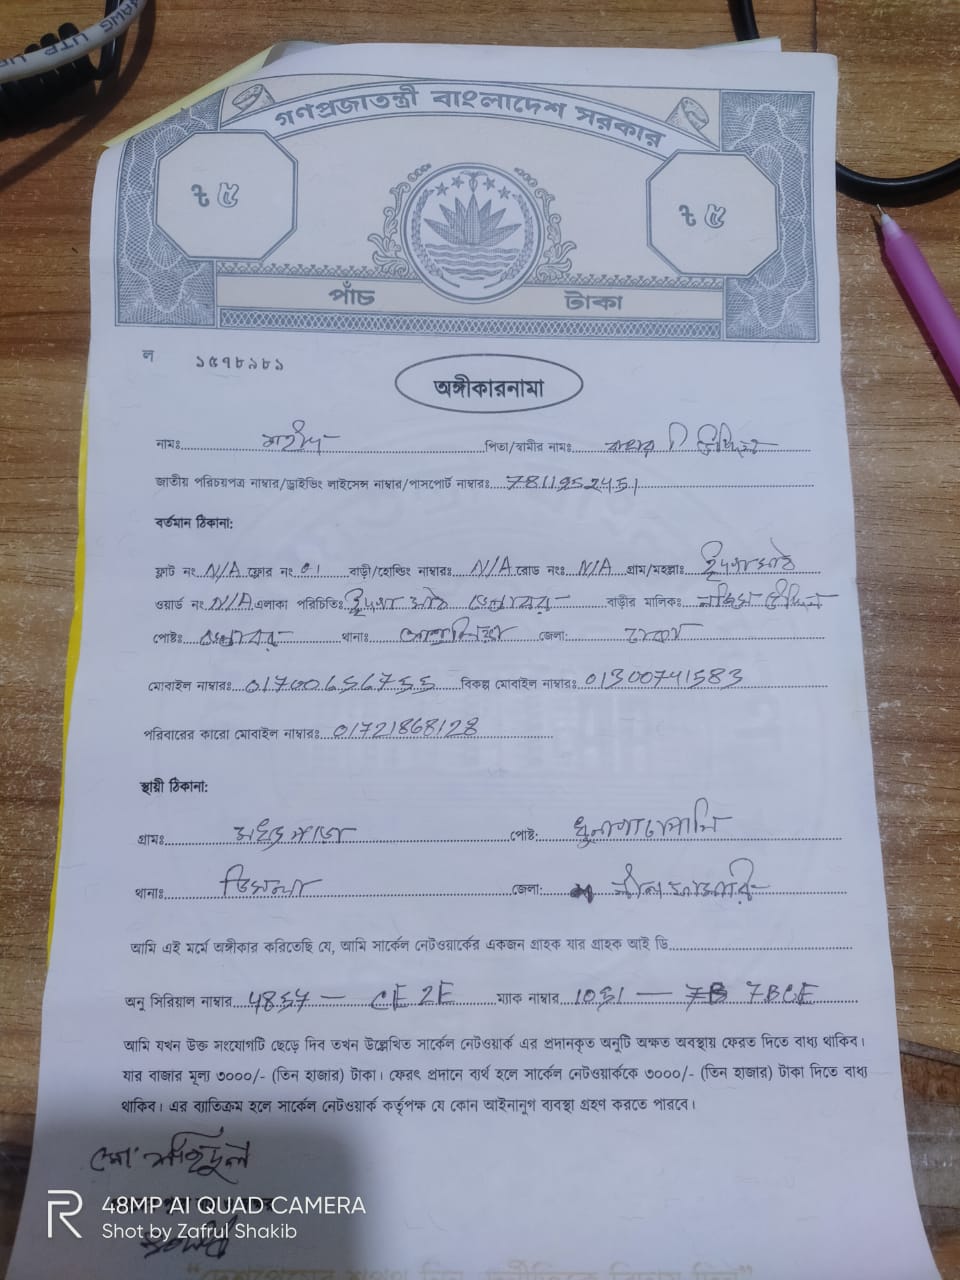 গণপ্রজাতন্ত্রী বাংলাদেশ সরকার
৳ ৫
৳ ৫
পাঁচ টাকা
ল ১৫৭৮৯৮১
অঙ্গীকারনামা
নামঃ পিতা/স্বামীর নামঃ
জাতীয় পরিচয়পত্র নাম্বার/ড্রাইভিং লাইসেন্স নাম্বার/পাসপোর্ট নাম্বারঃ 7811952451
বর্তমান ঠিকানা:
ফ্লাট নং N/A ফ্লোর নং 01 বাড়ী/হোল্ডিং নাম্বারঃ N/A রোড নংঃ N/A গ্রাম/মহল্লাঃ ঈদগা মাঠ
ওয়ার্ড নং N/A এলাকা পরিচিতিঃ ঈদগা মাঠ বাড়ীর মালিকঃ
পোষ্টঃ থানাঃ আশুলিয়া জেলা: ঢাকা
মোবাইল নাম্বারঃ 01700656755 বিকল্প মোবাইল নাম্বারঃ 01300741583
পরিবারের কারো মোবাইল নাম্বারঃ 01721868128
স্থায়ী ঠিকানা:
গ্রামঃ পোষ্ট:
থানাঃ ডিমলা জেলা: নীলফামারি
আমি এই মর্মে অঙ্গীকার করিতেছি যে, আমি সার্কেল নেটওয়ার্কের একজন গ্রাহক যার গ্রাহক আই ডি
অনু সিরিয়াল নাম্বার 4857 - CE 2E ম্যাক নাম্বার 1051 - 7B 7BCE
আমি যখন উক্ত সংযোগটি ছেড়ে দিব তখন উল্লেখিত সার্কেল নেটওয়ার্ক এর প্রদানকৃত অনুটি অক্ষত অবস্থায় ফেরত দিতে বাধ্য থাকিব।
যার বাজার মূল্য ৩০০০/- (তিন হাজার) টাকা। ফেরৎ প্রদানে ব্যর্থ হলে সার্কেল নেটওয়ার্ককে ৩০০০/- (তিন হাজার) টাকা দিতে বাধ্য
থাকিব। এর ব্যতিক্রম হলে সার্কেল নেটওয়ার্ক কর্তৃপক্ষ যে কোন আইনানুগ ব্যবস্থা গ্রহণ করতে পারবে।
মো: শহিদুল
48MP AI QUAD CAMERA
Shot by Zafrul Shakib